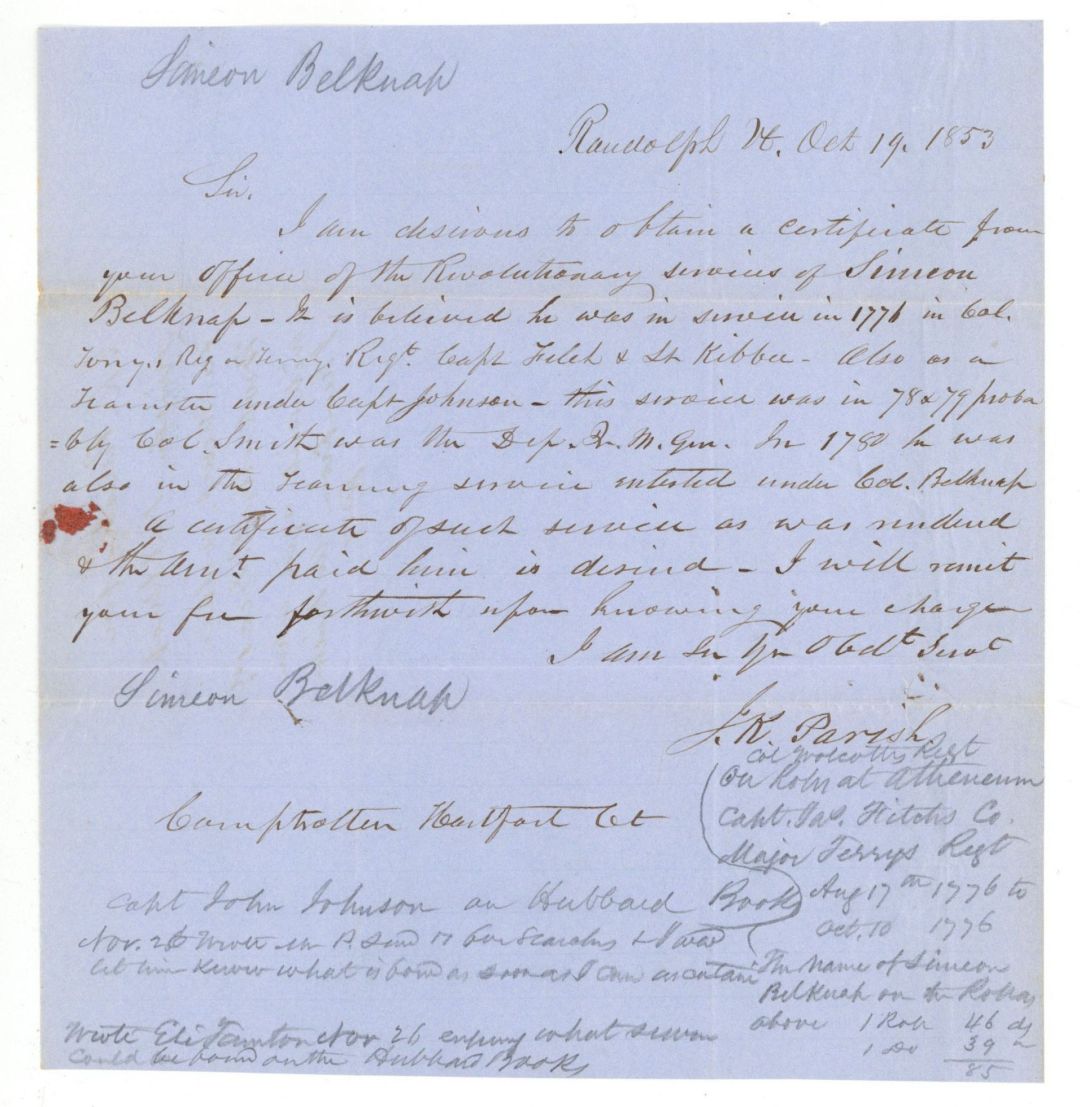 Simeon Belknap
Randolph Vt. Oct 19. 1853
Sir.
I am desirous to obtain a certificate from
your office of the Revolutionary services of Simeon
Belknap - It is believed he was in service in 1776 in Col.
Terry. Regt. Capt Fitch & Lt Kibbee - Also as a
Teamster under Capt Johnson - this service was in 78 & 79 proba
=bly Col. Smith was the Dep. Qr. M. Gen. In 1780 he was
also in the Teaming service entested under Col. Belknap
A certificate of such service as was rendered
& the Amt. paid him is desired - I will remit
your fee forthwith upon knowing your charge
I am Sir Yr Obdt Servt
Simeon Belknap
J. K. Parish
Comptroller Hartfort Ct
Col Wolcotts Regt
On Rolls at Atheneum
Capt. Jas. Fitchs Co.
Major Terrys Regt
Aug 17th 1776 to
Oct. 10 1776
The Name of Simeon
Belknap on the Rolls as
above 1 Roll 46 dy
1 Do 39 "
85
Capt John Johnson on Hubbard Book
Nov. 26 Wrote Mr P. for Searches & I wd
let him know what is found as soon as I can ascertain
Wrote Eli Nov 26 enquiry what
could be found on the Hubbard Books